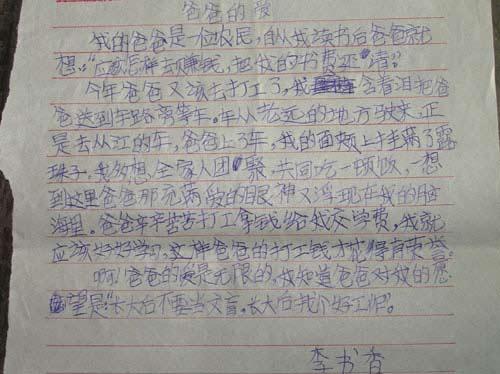 爸爸的爱
我的爸爸是一位农民，自从我读书后爸爸就
想：“应该怎样去赚钱，把女的书费还清？
今年爸爸又该去打工了，我含着泪把爸
爸送到车路旁等车。车从老远的地方驶来，正
是去从江的车，爸爸上了车，我的面颊上挂满了露
珠子，我多想全家人团聚，共同吃一顿饭，一想
到这里爸爸那充满爱的眼神又浮现在我的脑
海里。爸爸辛辛苦苦打工拿钱给我交学费，我就
应该好好学习，这样爸爸的打工钱才花得有
啊！爸爸的爱是无限的，我知道爸爸对女的愿
望是“长大后不要当文盲。长大后找个好工作”。
李书香